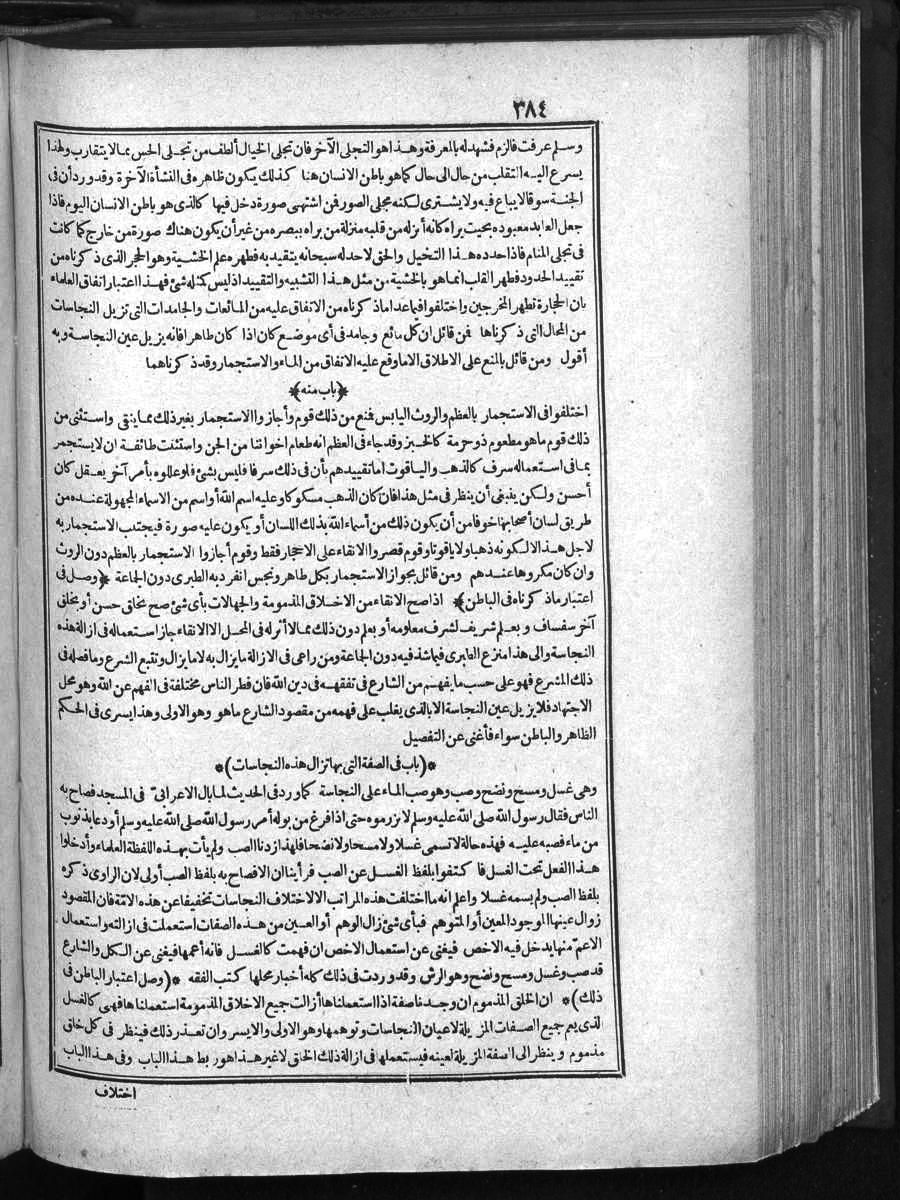 ٣٨٤
وسلم عرفت فالزم فشهد له بالمعرفة وهذا هو التجلى الآخر فان تجلى الخيال ألطف من تجلى الحس بما لا يتقارب ولهذا
يسرع اليه التقلب من حال الى حال كما هو باطن الانسان هنا كذلك يكون ظاهره فى النشأة الآخرة وقد ورد أن فى
الجنة سوقا لا يباع فيه ولا يشترى لكنه مجلى الصور فمن اشتهى صورة دخل فيها كالذى هو باطن الانسان اليوم فاذا
جعل العابد معبوده بحيث يراه كانه أنزله من قلبه منزلة من يراه ببصره من غير أن يكون هناك صورة من خارج كما كانت
فى تجلى المنام فاذا حدده هذا التخيل والحق لا حد له سبحانه يتقيد به فطهره علم الخشية وهو الحجر الذى ذكرناه من
تقييد الحدود فطهر القلب انما هو بالخشية من مثل هذا التشبيه والتقييد اذ ليس كمثله شئ فهذا اعتبار اتفاق العلماء
بان الحجارة تطهر المخرجين واختلفوا فيما عدا ما ذكرناه من الاتفاق عليه من المائعات والجامدات التى تزيل النجاسات
من المحال التى ذكرناها فمن قائل ان كل مائع وجامد فى أى موضع كان اذا كان طاهرا فانه يزيل عين النجاسة وبه
أقول ومن قائل بالمنع على الاطلاق الا ما وقع عليه الاتفاق من الماء والاستجمار وقد ذكرناهما
﴿باب منه﴾
اختلفوا فى الاستجمار بالعظم والروث اليابس فمنع من ذلك قوم وأجازوا الاستجمار بغير ذلك مما ينقى واستثنى من
ذلك قوم ما هو مطعوم ذو حرمة كالخبز وقد جاء فى العظم انه طعام اخواننا من الجن واستثنت طائفة ان لا يستجمر
بما فى استعماله سرف كالذهب والياقوت اما تقييدهم بأن فى ذلك سرفا فليس بشئ فلو عللوه بأمر آخر يعقل كان
أحسن ولكن ينبغى أن ينظر فى مثل هذا فان كان الذهب مسكوكا وعليه اسم الله أو اسم من الاسماء المجهولة عنده من
طريق لسان أصحابها خوفا من أن يكون ذلك من أسماء الله بذلك اللسان أو يكون عليه صورة فيجتنب الاستجمار به
لاجل هذا لا لكونه ذهبا ولا ياقوتا وقوم قصروا الانقاء على الاحجار فقط وقوم أجازوا الاستجمار بالعظم دون الروث
وان كان مكروها عندهم ومن قائل بجواز الاستجمار بكل طاهر ونجس انفرد به الطبرى دون الجاعة ﴿وصل فى
اعتبار ما ذكرناه فى الباطن﴾ اذا صح الانقاء من الاخلاق المذمومة والجهالات بأى شئ صح بخلق حسن أو بخلق
آخر سفساف وبعلم شريف لشرف معلومه أو بعلم دون ذلك مما لا أثر له فى المحل الا الانقاء جاز استعماله فى ازالة هذه
النجاسة والى هذا منزع الطبرى فيما شذ فيه دون الجاعة ومن راعى فى الازالة ما يزال به لا ما يزال وتتبع الشرع وما فصله فى
ذلك المشرع فهو على حسب ما يفهم من الشارع فى تفقهه فى دين الله فان فطر الناس مختلفة فى الفهم عن الله وهو محل
الاجتهاد فلا يزيل عين النجاسة الا بالذى يغلب على فهمه من مقصود الشارع ما هو وهو الاولى وهذا يسرى فى الحكم
الظاهر والباطن سواء فأغنى عن التفصيل
﴿باب فى الصفة التى بها تزال هذه النجاسات﴾
وهى غسل ومسح ونضح وصب وهو صب الماء على النجاسة كما ورد فى الحديث لما بال الاعرابى فى المسجد فصاح به
الناس فقال رسول الله صلى الله عليه وسلم لا تزرموه حتى اذا فرغ من بوله أمر رسول الله صلى الله عليه وسلم أو دعا بذنوب
من ماء فصبه عليه فهذه حالة لا تسمى غسلا ولا مسحا ولا نضحا فلهذا زدنا الصب ولم يأت بهذه اللفظة العلماء وأدخلوا
هذا الفعل تحت الغسل فاكتفوا بلفظ الغسل عن الصب فرأينا ان الافصاح به بلفظ الصب أولى لان الراوى ذكره
بلفظ الصب ولم يسمه غسلا واعلم انه ما اختلفت هذه المراتب الا لاختلاف النجاسات تخفيفا عن هذه الامّة فان المقصود
زوال عينها الموجود المعين أو المتوهم فبأى شئ زال الوهم أو العين من هذه الصفات استعملت فى ازالته واستعمال
الاعم منها يدخل فيه الاخص فيغنى عن استعمال الاخص ان فهمت كالغسل فانه أعمها فيغنى عن الكل والشارع
قد صب وغسل ومسح ونضح وهو الرش وقد وردت فى ذلك كله أخبار محلها كتب الفقه ﴿وصل اعتبار الباطن فى
ذلك﴾ ان الخلق المذموم ان وجد نا صفة اذا استعملناها أزالت جميع الاخلاق المذمومة استعملناها فهى كالغسل
الذى يعم جميع الصفات المزيلة لاعيان النجاسات وتوهمها وهو الاولى والايسر وان تعذر ذلك فينظر فى كل خلق
مذموم وينظر الى الصفة المزيلة لعينه فيستعملها فى ازالة ذلك الخلق لا غير هذا هو ربط هذا الباب وفى هذا الباب
اختلاف